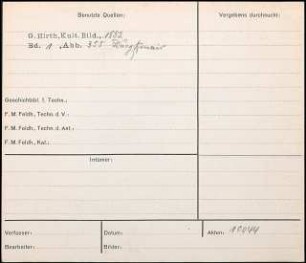 Benutzte Quellen:
Vergebens durchsucht:
G. Hirth, Kult. Bild., 1882
Bd. 1, Abb. 355 Burgkmair
Geschichtsbl. f. Techn.:
F. M. Feldh., Techn. d. V.:
F. M. Feldh., Techn. d. Ant.:
F. M. Feldh., Kal.:
Irrtümer:
Verfasser:
Datum:
Akten: 10844
Bearbeiter:
Bilder: